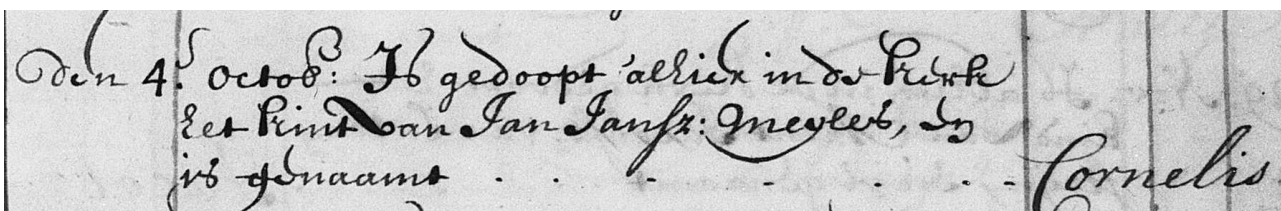 den 4: octob: Is gedoopt alhier in de kerk
het kint van Jan Jansz: Meyles, en
is genaamt . . . . . . - Cornelis